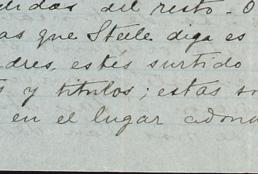 didas del resto. O
as que Steele diga es
dres, estés surtido
s y titulos; estas so
en el lugar adond